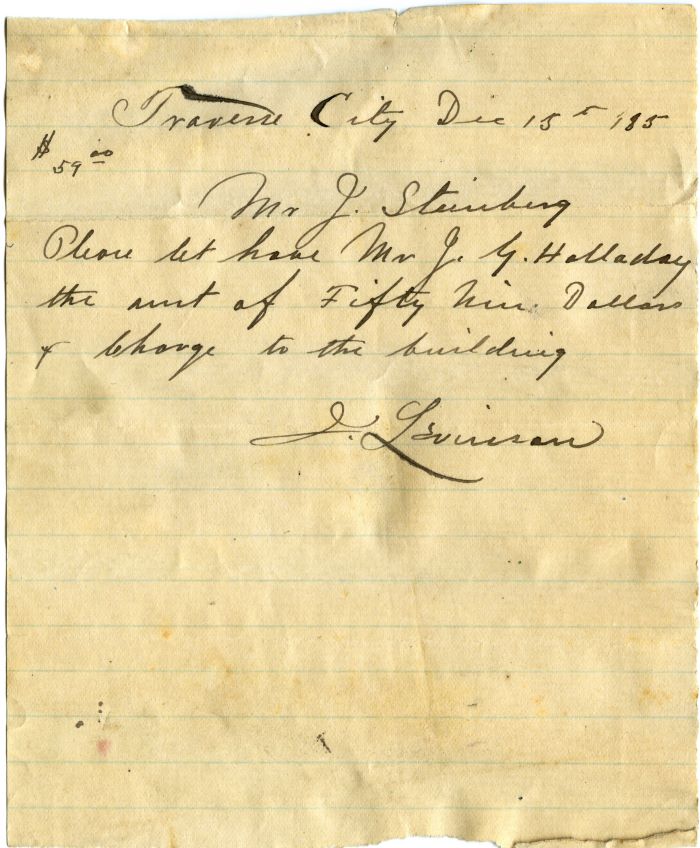 Traverse City Dec 15th 185
$ 59.00
Mr J. Steinberg
Please let have Mr J. G. Holladay
the amt of Fifty Nin. Dollars
& Charge to the building
J. Levinson